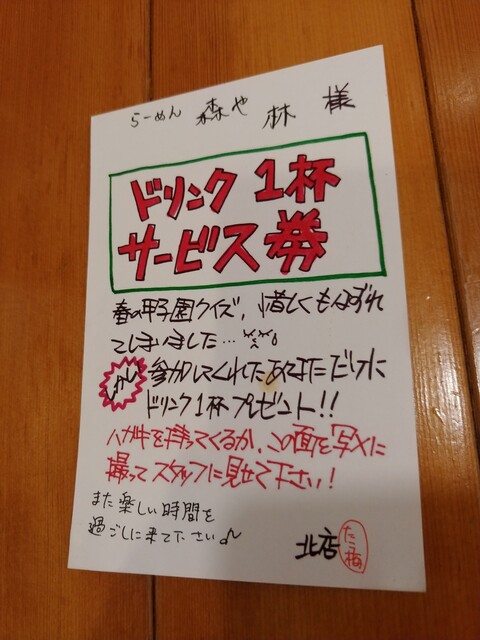 らーめん 森や 林 様
ドリンク 1杯
サービス券
春の甲子園クイズ、惜しくもはずれ
てしまいました…
しかし
参加してくれたあなただけに
ドリンク1杯プレゼント!!
ハガキを持ってくるか、この面を写メに
撮ってスタッフに見せて下さい!
また楽しい時間を
過ごしに来て下さい
北店
たこ梅